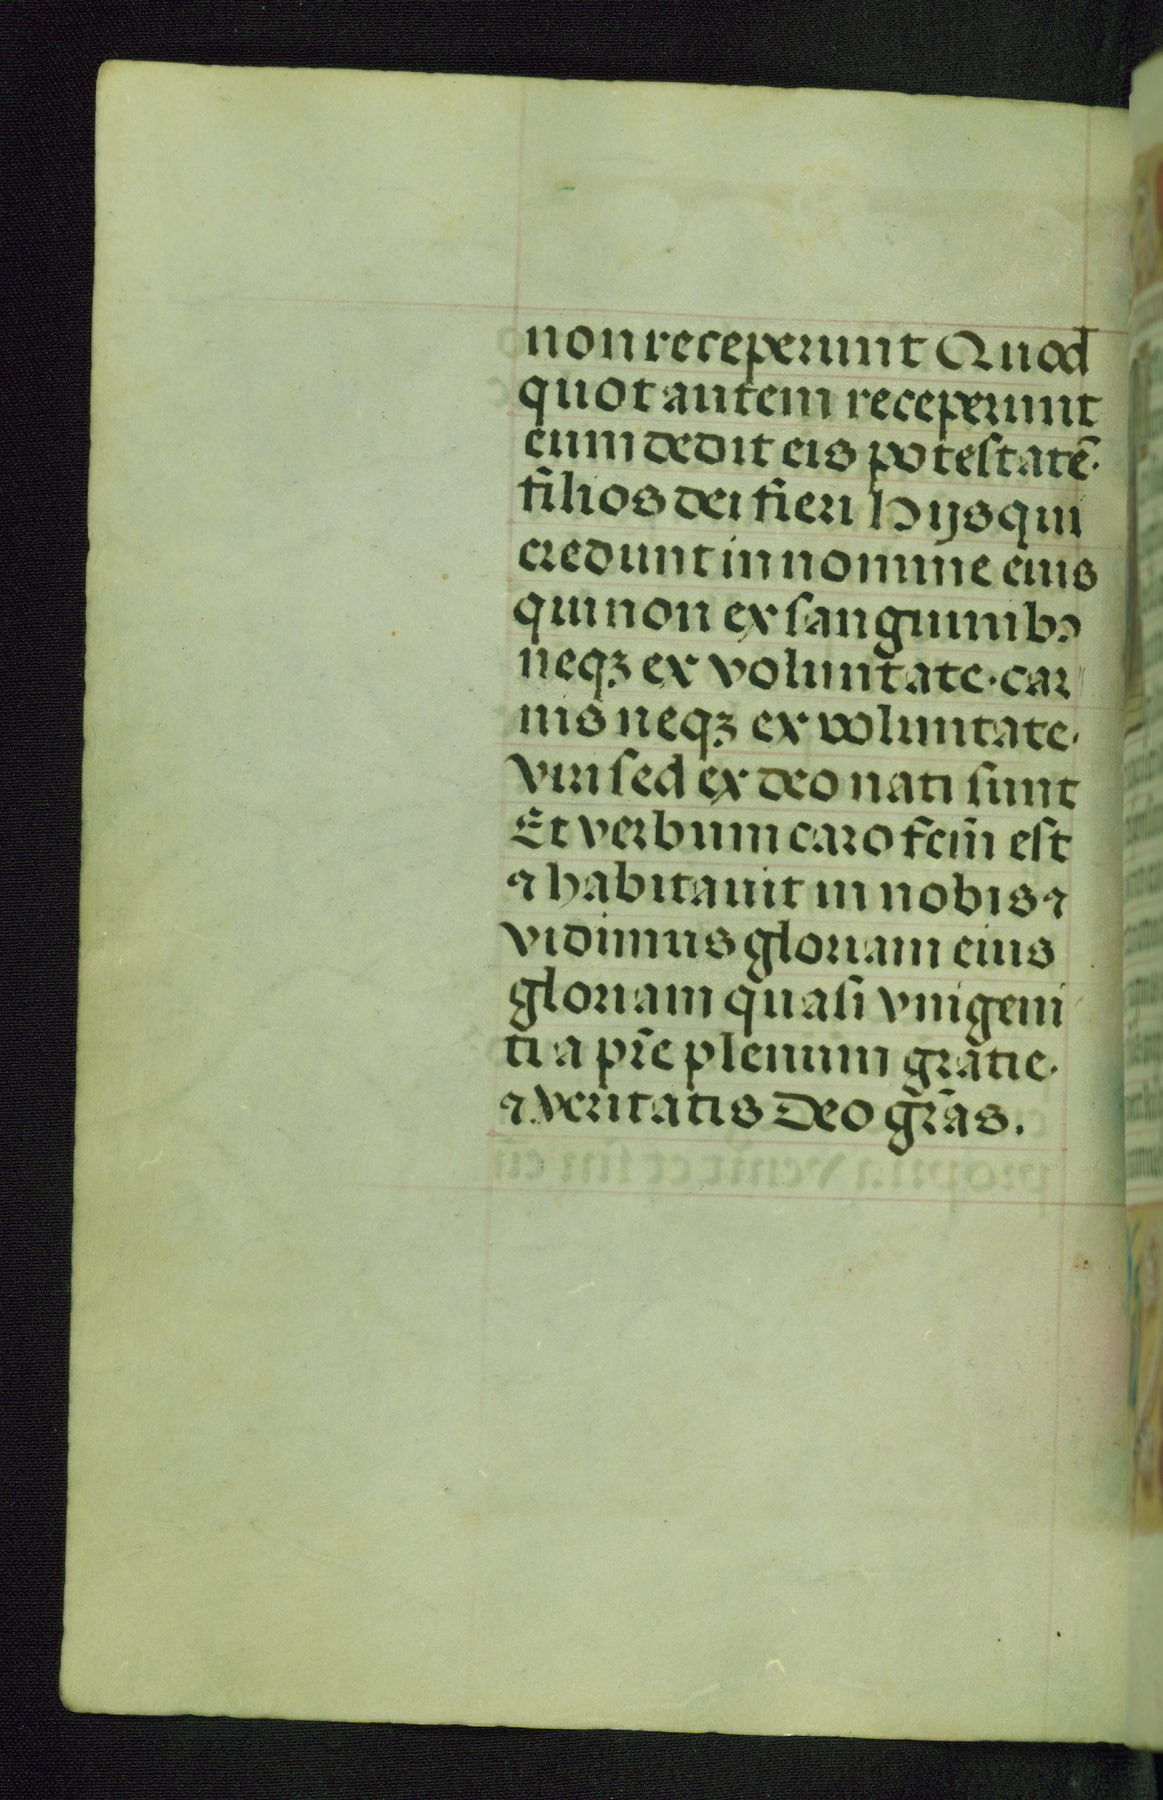 non receperunt Quod
quot autem receperunt
eum dedit eis potestatē·
filios dei fieri Hijs qui
credunt in nomine eius
qui non ex sanguinibꝰ
neqꝫ ex voluntate·car
nis neqꝫ ex voluntate·
viri sed ex deo nati sunt
Et verbum caro fcm̄ est
⁊ habitauit in nobis ⁊
vidimus gloriam eius
gloriam quasi vnigeni
ti a pr̄e plenum gratie·
⁊ veritatis Deo gr̄as.